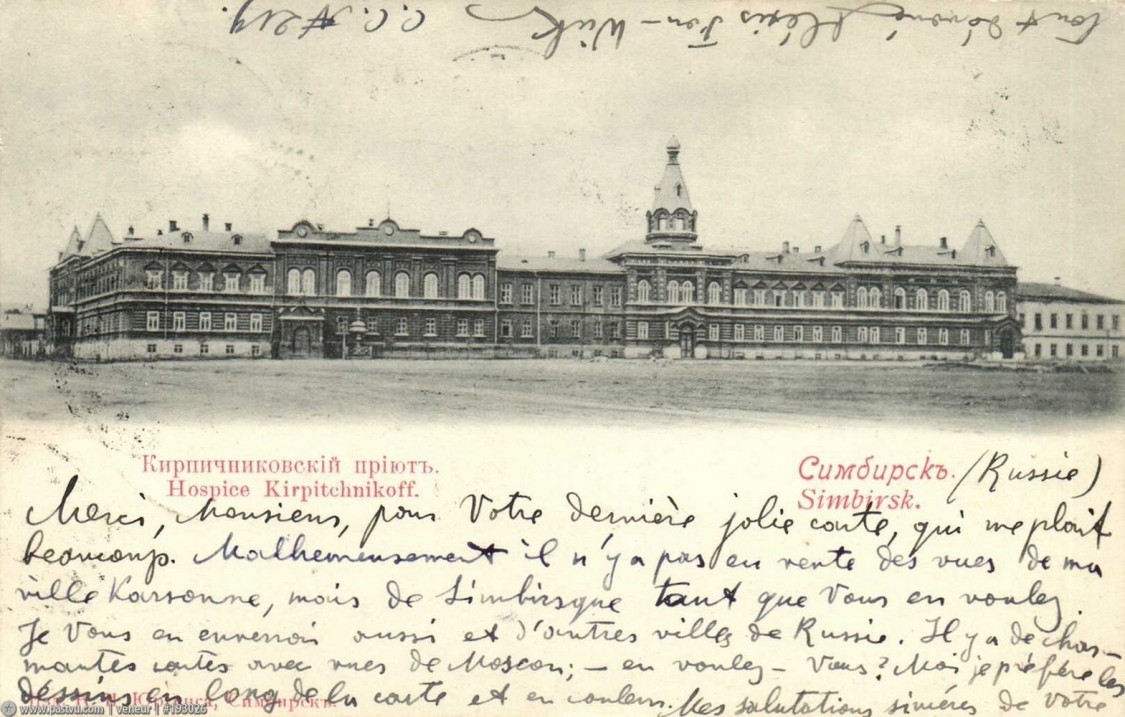 Кирпичниковскій пріютъ.
Hospice Kirpitchnikoff.
Симбирскъ. (Russie)
Simbirsk.
Merci, Monsieur, pour Votre dernière jolie carte, qui me plait
beaucoup. Malheureusement il n'y a pas en vente des vues de ma
ville Karsonne, mais de Simbirsque tant que Vous en voulez.
Je Vous en enverrai aussi et d'autres villes de Russie. Il y a de char-
mantes cartes avec vues de Moscou; – en voulez-Vous? Moi je préfère les
dessins en long de la carte et en couleurs. Mes salutations sincères de Votre
tout dévoué Alexis
C. C. № 219.
Симбирскъ.
www.pastvu.com | veneur | #193026